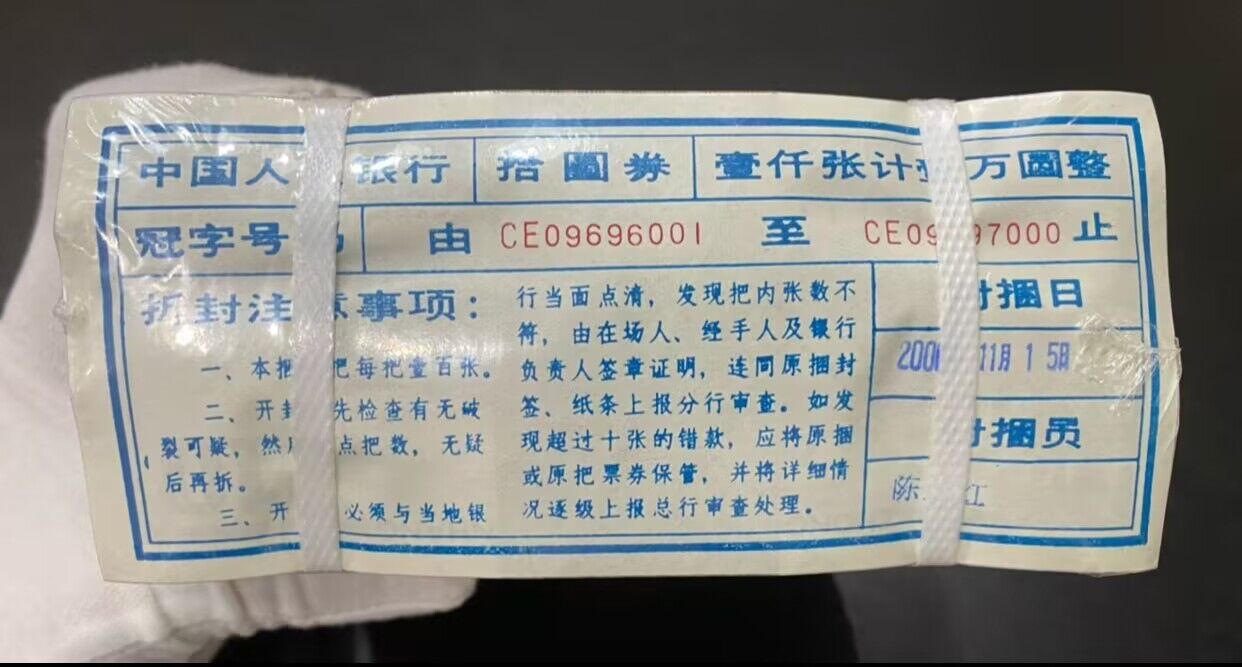 中国人 银行 拾圆券 壹仟张计 万圆整
冠字号 由 CE09696001 至 CE09 97000 止
拆封注 事项：
一、本捆 把每把壹百张。
二、开封 先检查有无破
裂可疑，然 点把数，无疑
后再拆。
三、开 必须与当地银
行当面点清，发现把内张数不
符，由在场人、经手人及银行
负责人签章证明，连同原捆封
签、纸条上报分行审查。如发
现超过十张的错款，应将原捆
或原把票券保管，并将详细情
况逐级上报总行审查处理。
捆日
200 11月15日
捆员
陈 红